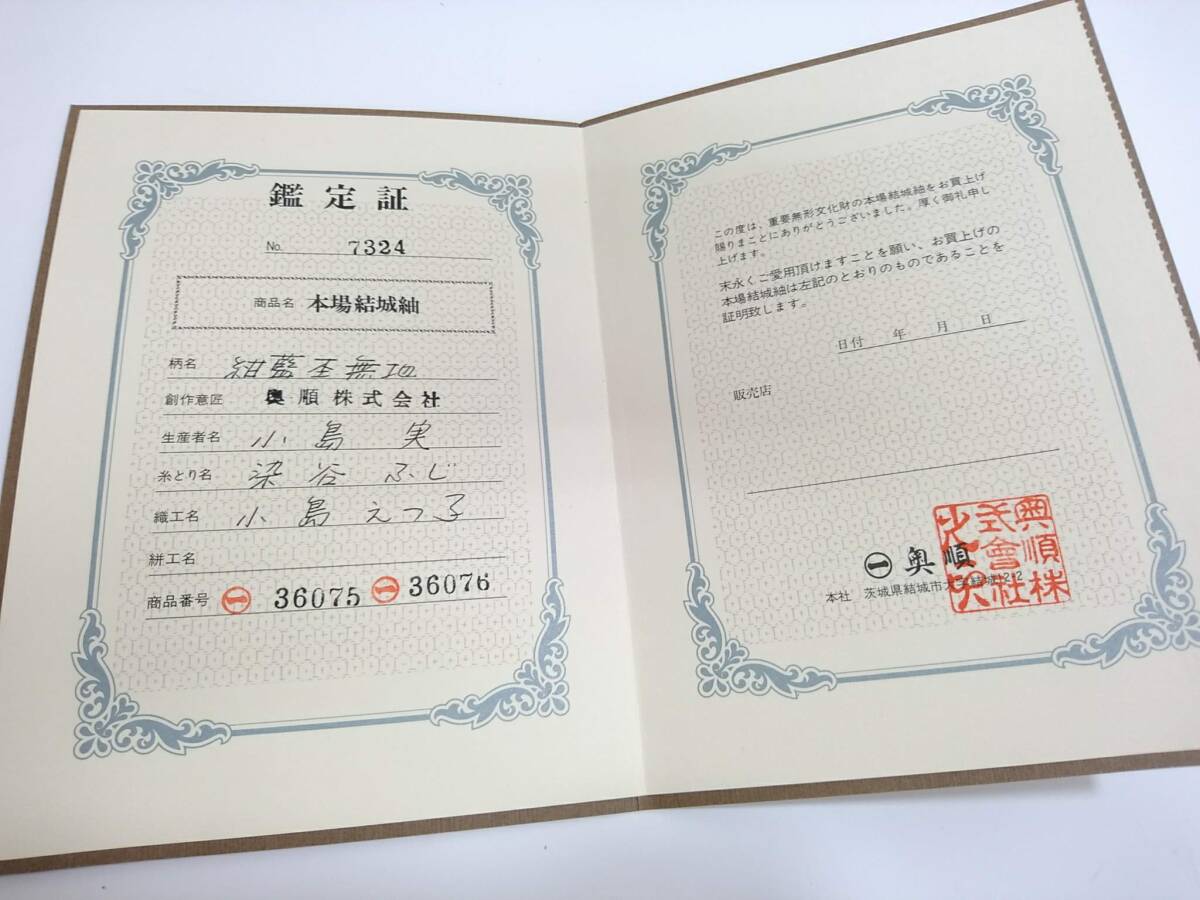 鑑定証
No. 7324
商品名 本場結城紬
柄名 紺藍杢無地
創作意匠 奥順株式会社
生産者名 小島 実
糸とり名 染谷 ふじ
織工名 小島えつ子
絣工名
商品番号 ㊀ 36075 ㊀ 36076
この度は、重要無形文化財の本場結城紬をお買上げ
賜りまことにありがとうございました。厚く御礼申し
上げます。
末永くご愛用頂けますことを願い、お買上げの
本場結城紬は左記のとおりのものであることを
証明致します。
日付 年 月 日
販売店
㊀ 奥順
本社 茨城県結城市大字結城12-2
奥順株
式會社